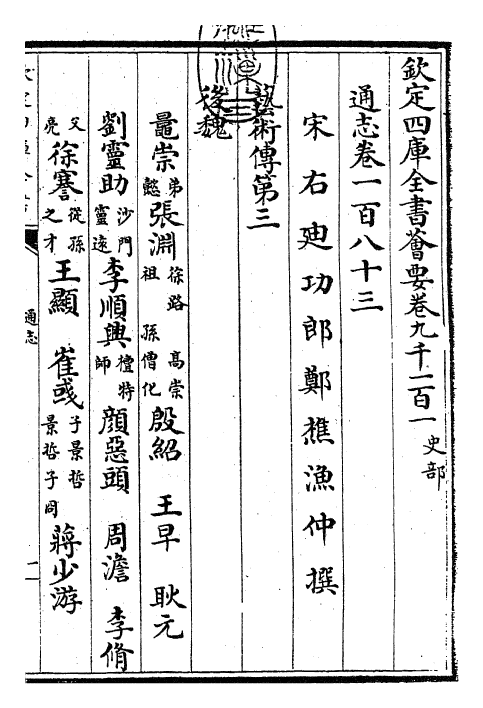 欽定四庫全書薈要卷九千一百一 史部
通志卷一百八十三
宋右迪功郎鄭樵漁仲撰
藝術傳第三
後魏
鼂崇 弟懿 張淵 徐路 高崇祖 孫僧化 殷紹 王早 耿元
劉靈助 沙門靈遠 李順興 檀特師 顔惡頭 周澹 李脩
徐謇 兄文 從孫之才 王顯 崔彧 子景哲 景哲子冏 蔣少游
通志